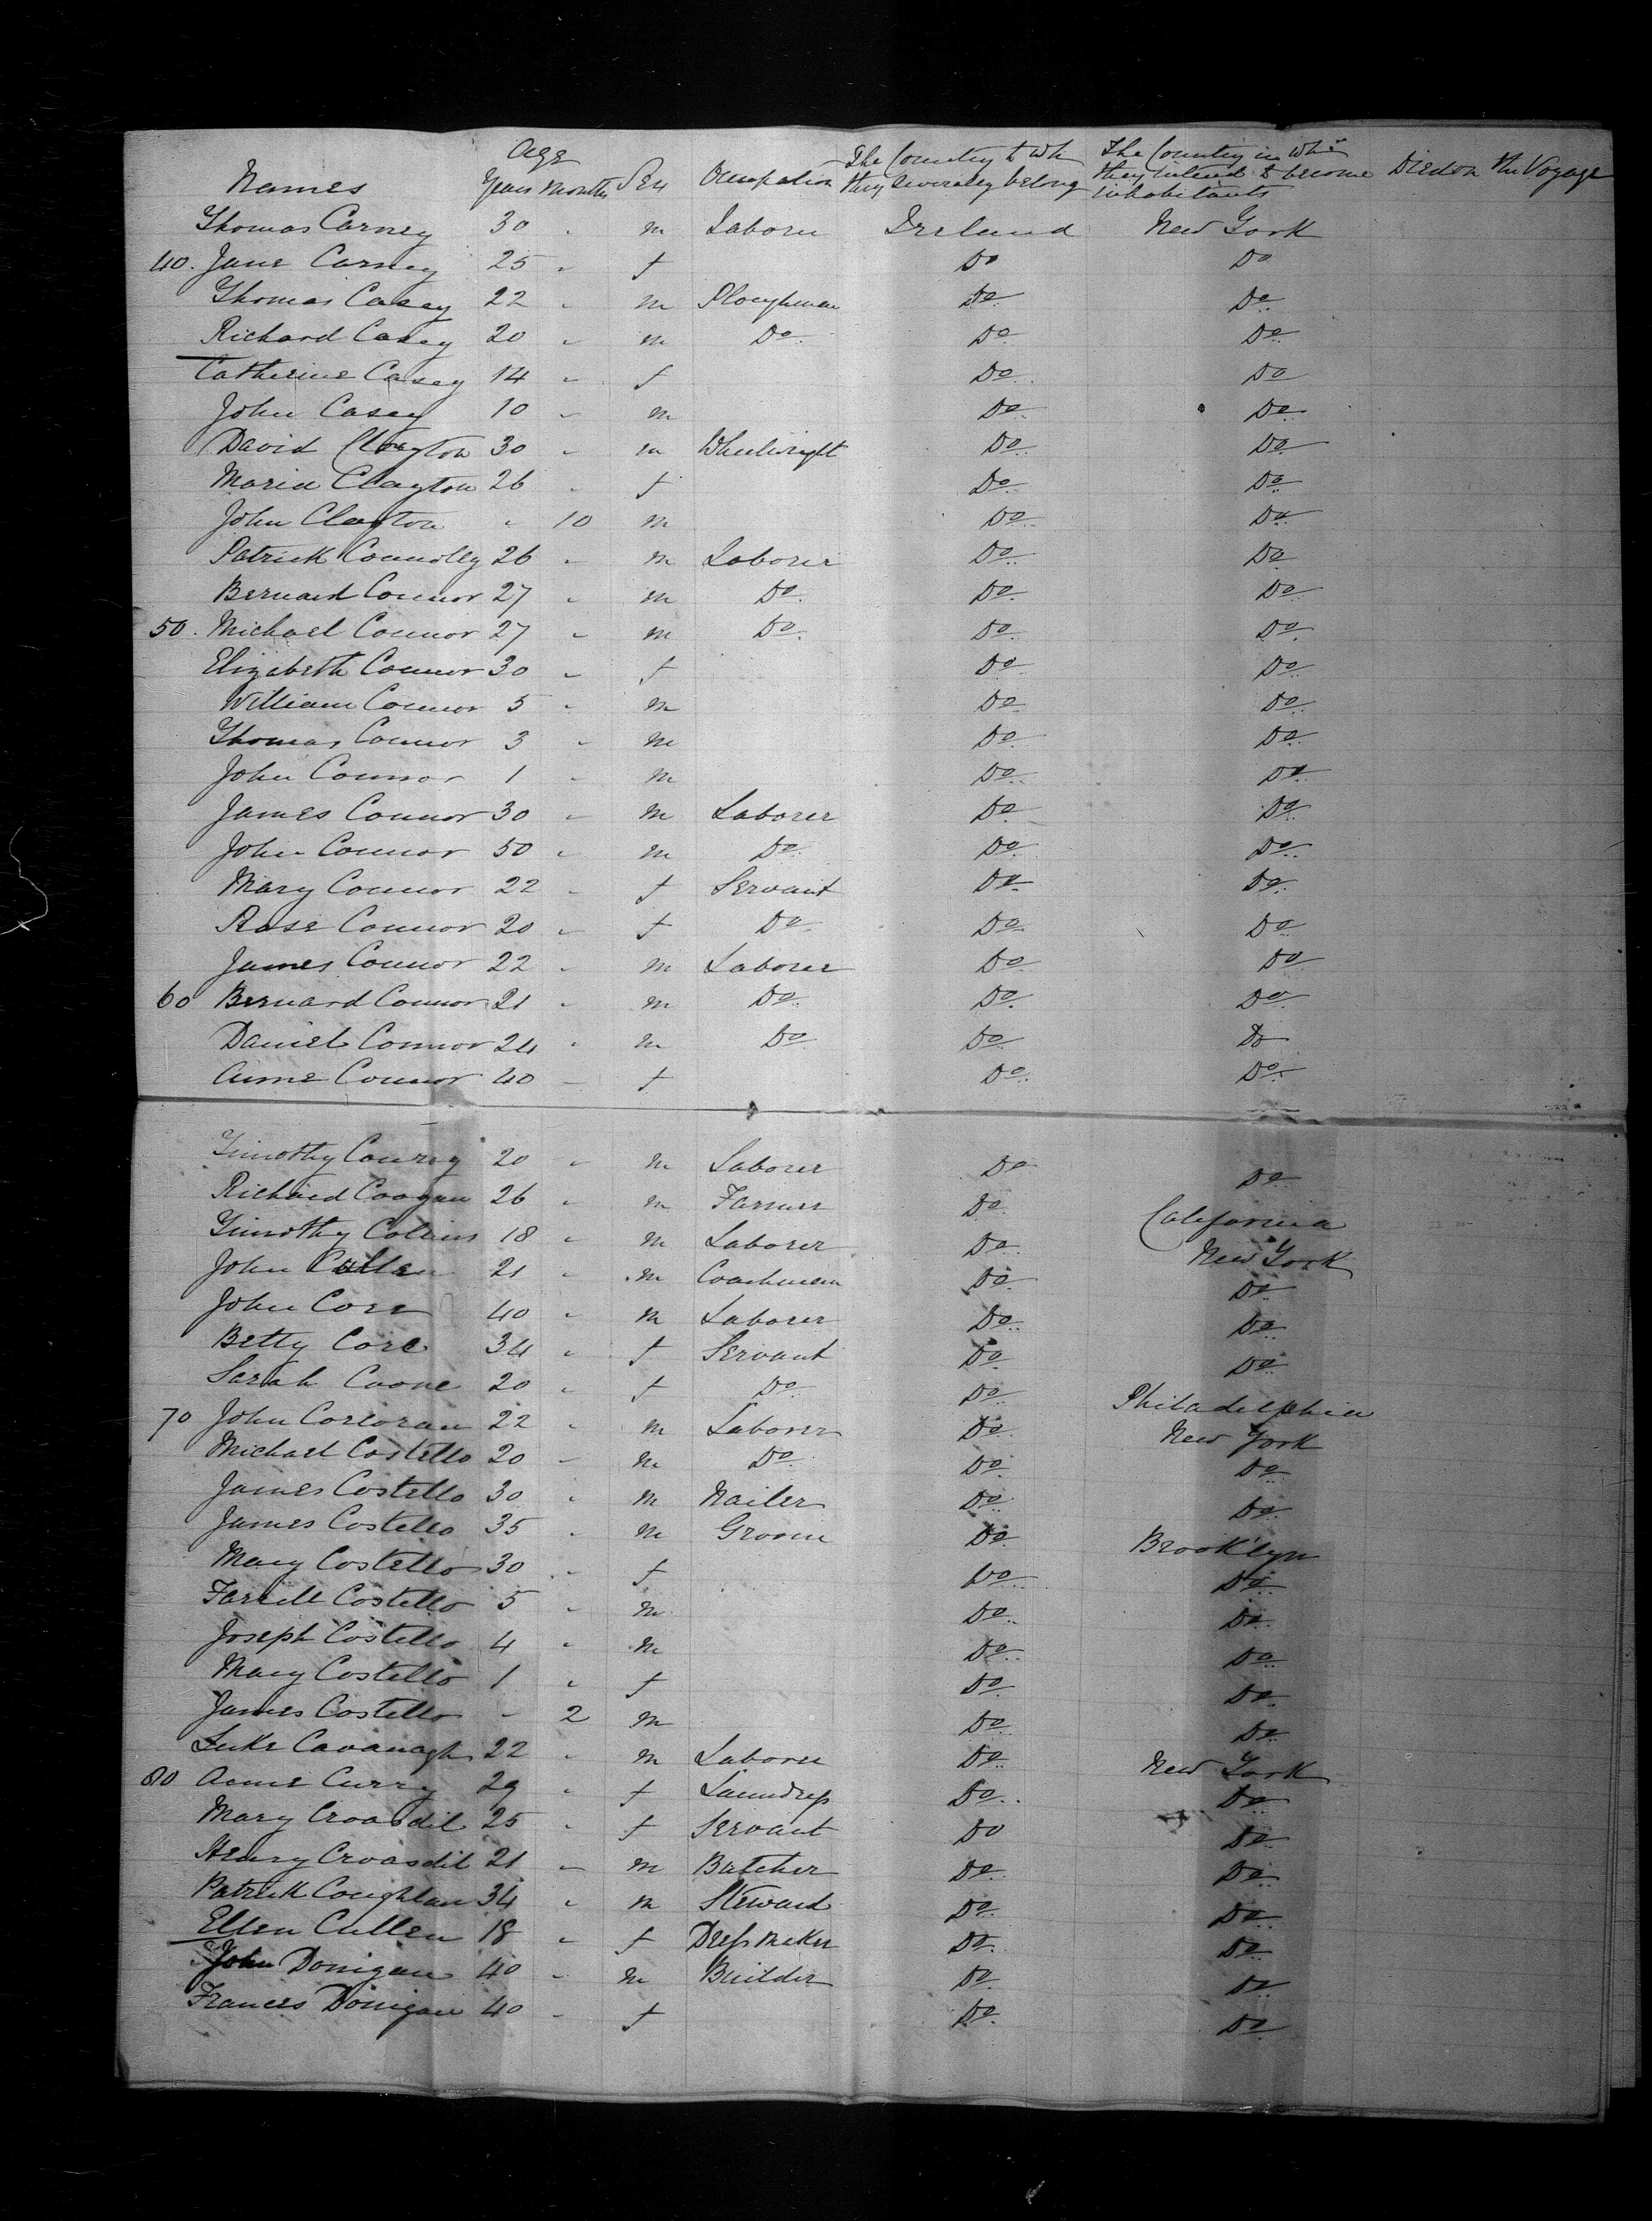 Names Age Years Months Sex Occupation The Country to wh they severally belong The Country in wh they intend to become inhabitants Died on the Voyage
Thomas Carney 30 " m Laborer Ireland New York
40. Jane Carney 25 " f Do Do
Thomas Casey 22 " m Ploughman Do Do
Richard Casey 20 " m Do Do Do
Catherine Casey 14 " f Do Do
John Casey 10 " m Do Do
David Clayton 30 " m Wheelwright Do Do
Maria Clayton 26 " f Do Do
John Clayton " 10 m Do Do
Patrick Connolly 26 " m Laborer Do Do
Bernard Connor 27 " m Do Do Do
50. Michael Connor 27 " m Do Do Do
Elizabeth Connor 30 " f Do Do
William Connor 5 " m Do Do
Thomas Connor 3 " m Do Do
John Connor 1 " m Do Do
James Connor 30 " m Laborer Do Do
John Connor 50 " m Do Do Do
Mary Connor 22 " f Servant Do Do
Rose Connor 20 " f Do Do Do
James Connor 22 " m Laborer Do Do
60 Bernard Connor 21 " m Do Do Do
Daniel Connor 24 " m Do Do Do
Anne Connor 40 " f Do Do
Timothy Conroy 20 " m Laborer Do Do
Richard Coogan 26 " m Farmer Do California
Timothy Collins 18 " m Laborer Do New York
John Cullen 21 " m Coachman Do Do
John Core 40 " m Laborer Do Do
Betty Core 34 " f Servant Do Do
Sarah Coone 20 " f Do Do Philadelphia
70 John Corcoran 22 " m Laborer Do New York
Michael Costello 20 " m Do Do Do
James Costello 30 " m Nailer Do Do
James Costello 35 " m Groom Do Brooklyn
Mary Costello 30 " f Do Do
Farrell Costello 5 " m Do Do
Joseph Costello 4 " m Do Do
Mary Costello 1 " f Do Do
James Costello " 2 m Do Do
Luke Cavanagh 22 " m Laborer Do New York
80 Anne Curry 29 " f Laundress Do Do
Mary Croasdil 25 " f Servant Do Do
Henry Croasdil 21 " m Butcher Do Do
Patrick Coughlan 34 " m Steward Do Do
Ellen Cullen 18 " f Dress Maker Do Do
John Donigan 40 " m Builder Do Do
Frances Donigan 40 " f Do Do